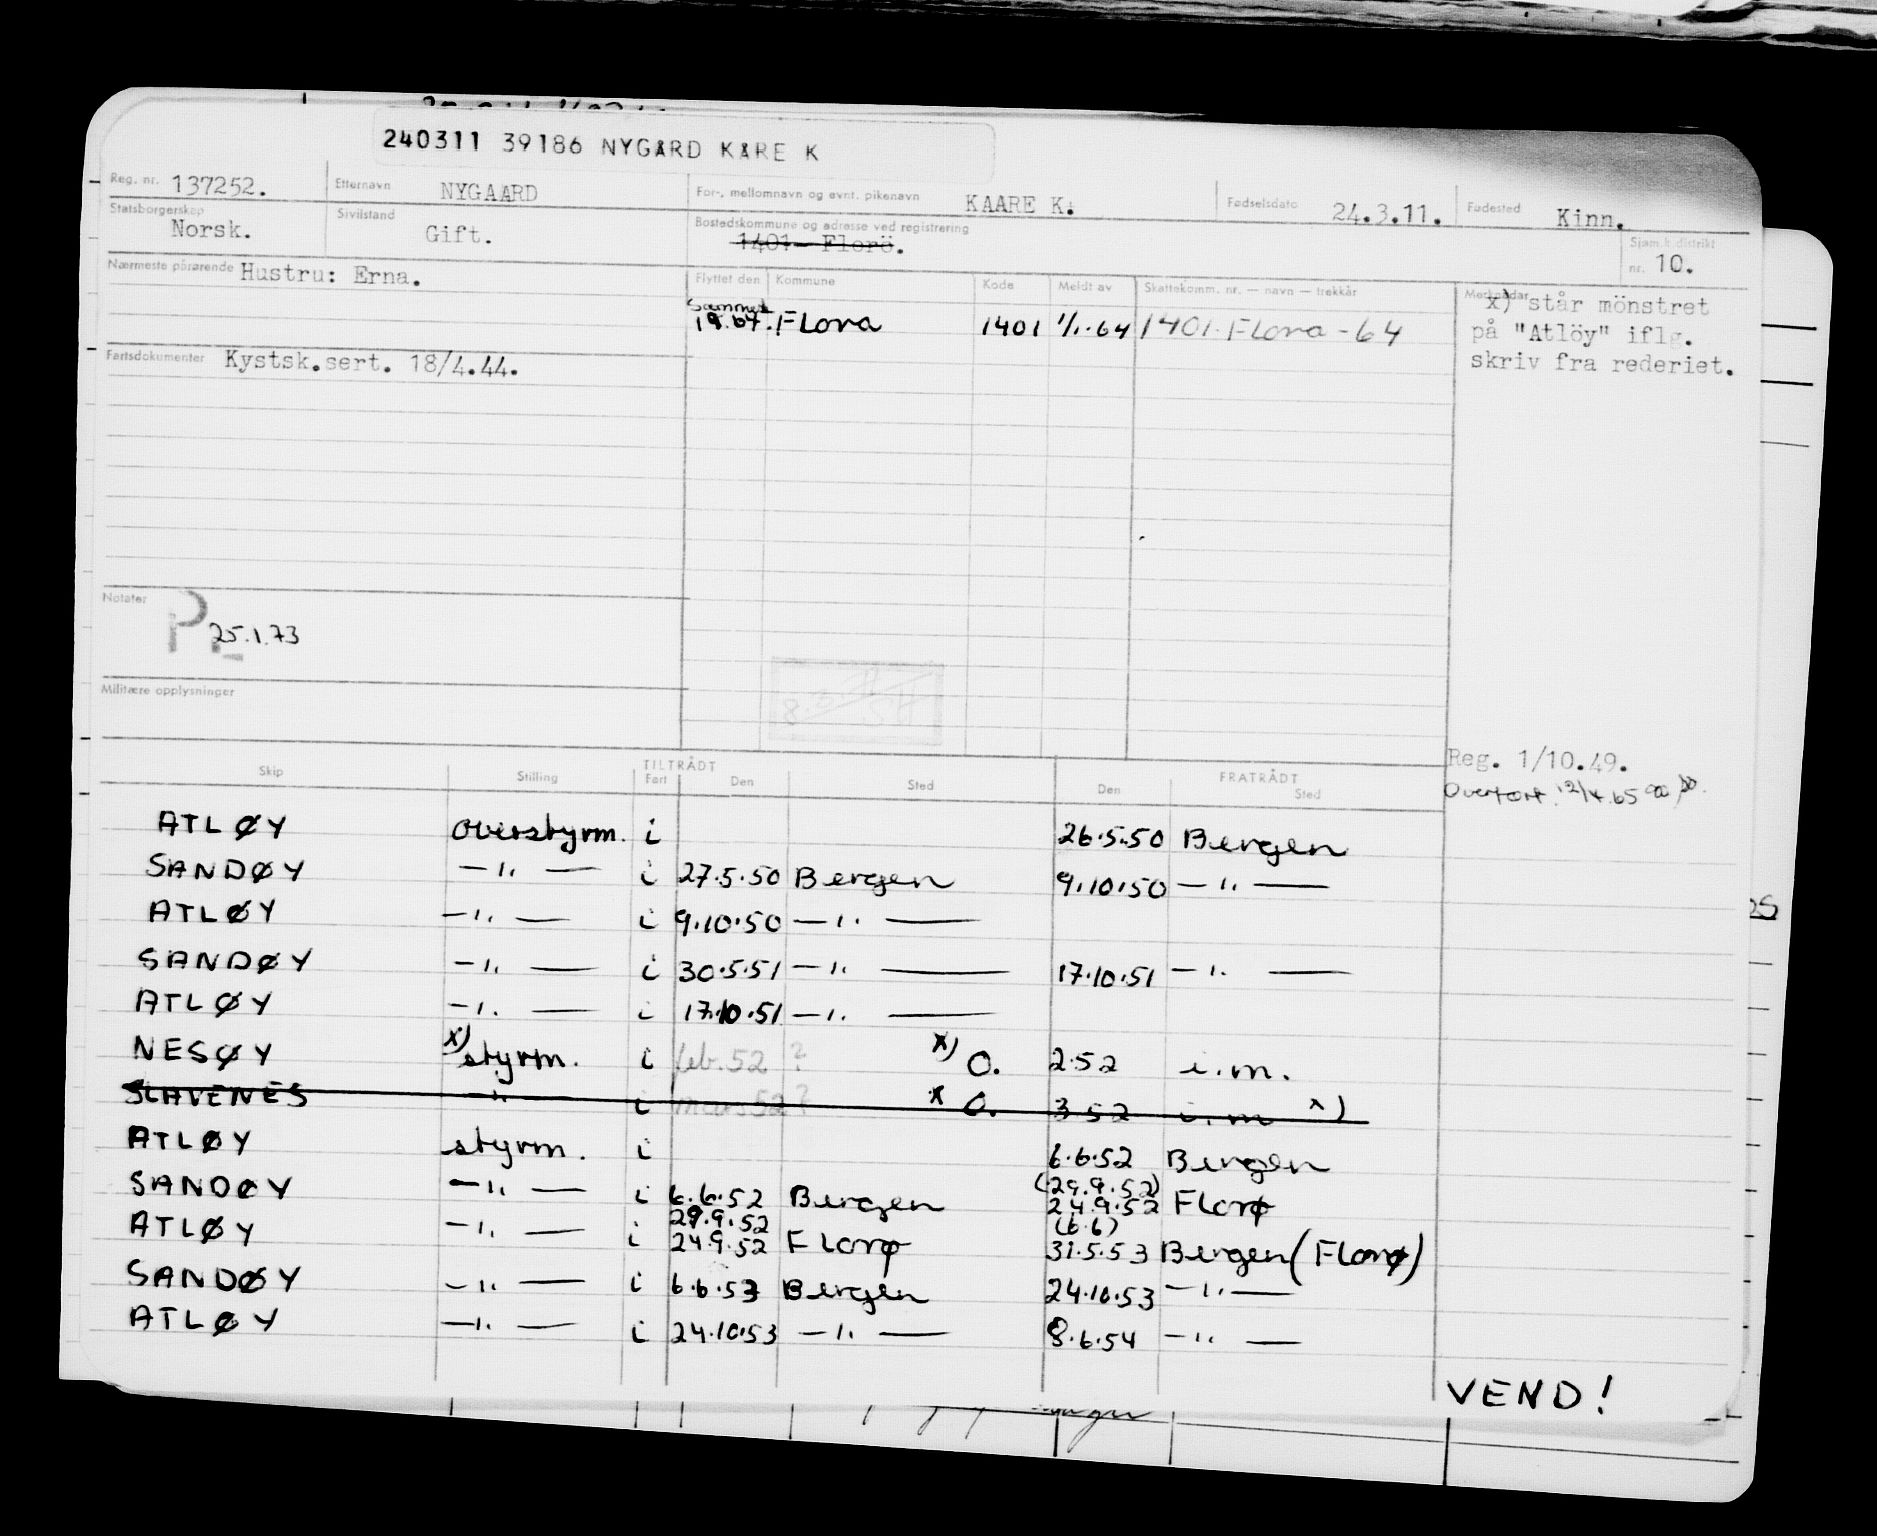 240311 39186 NYGÅRD KÅRE K
Reg. nr. 137252. Etternavn NYGAARD For-, mellomnavn og evnt. pikenavn KAARE K. Fødselsdato 24.3.11. Fødested Kinn.
Statsborgerskap Norsk. Sivilstand Gift. Bostedskommune og adresse ved registrering 1401 - Florö. Sjøm.k.distrikt nr. 10.
Nærmeste pårørende Hustru: Erna. Flyttet den Kommune Kode Meldt av Skattekomm. nr. — navn — trekkår Merknader
x) står mönstret
på "Atlöy" iflg.
skriv fra rederiet.
Samme
19.64. Flora 1401 1/1.64 1401 Flora - 64
Fartsdokumenter Kystsk.sert. 18/4.44.
Notater
P 25.1.73
Militære opplysninger
Reg. 1/10.49.
Overført. 12/4.65
Skip Stilling TILTRÅDT Fart Den Sted FRATRÅDT Den Sted
ATLØY overstyrm. i 26.5.50 Bergen
SANDØY —"— i 27.5.50 Bergen 9.10.50 —"—
ATLØY —"— i 9.10.50 —"—
SANDØY —"— i 30.5.51 —"— 17.10.51 —"—
ATLØY —"— i 17.10.51 —"—
NESØY x) styrm. i feb. 52 ? x) O. 2.52 i.m.
SLAVENES —"— i mars 52 ? x O. 3 52 i.m x)
ATLØY styrm. i 6.6.52 Bergen
SANDØY —"— i 6.6.52 Bergen (29.9.52) 24.9.52 Florø
ATLØY —"— i 29.9.52 24.9.52 Florø (6.6) 31.5.53 Bergen (Florø)
SANDØY —"— i 6.6.53 Bergen 24.10.53 —"—
ATLØY —"— i 24.10.53 —"— 8.6.54 —"—
VEND!